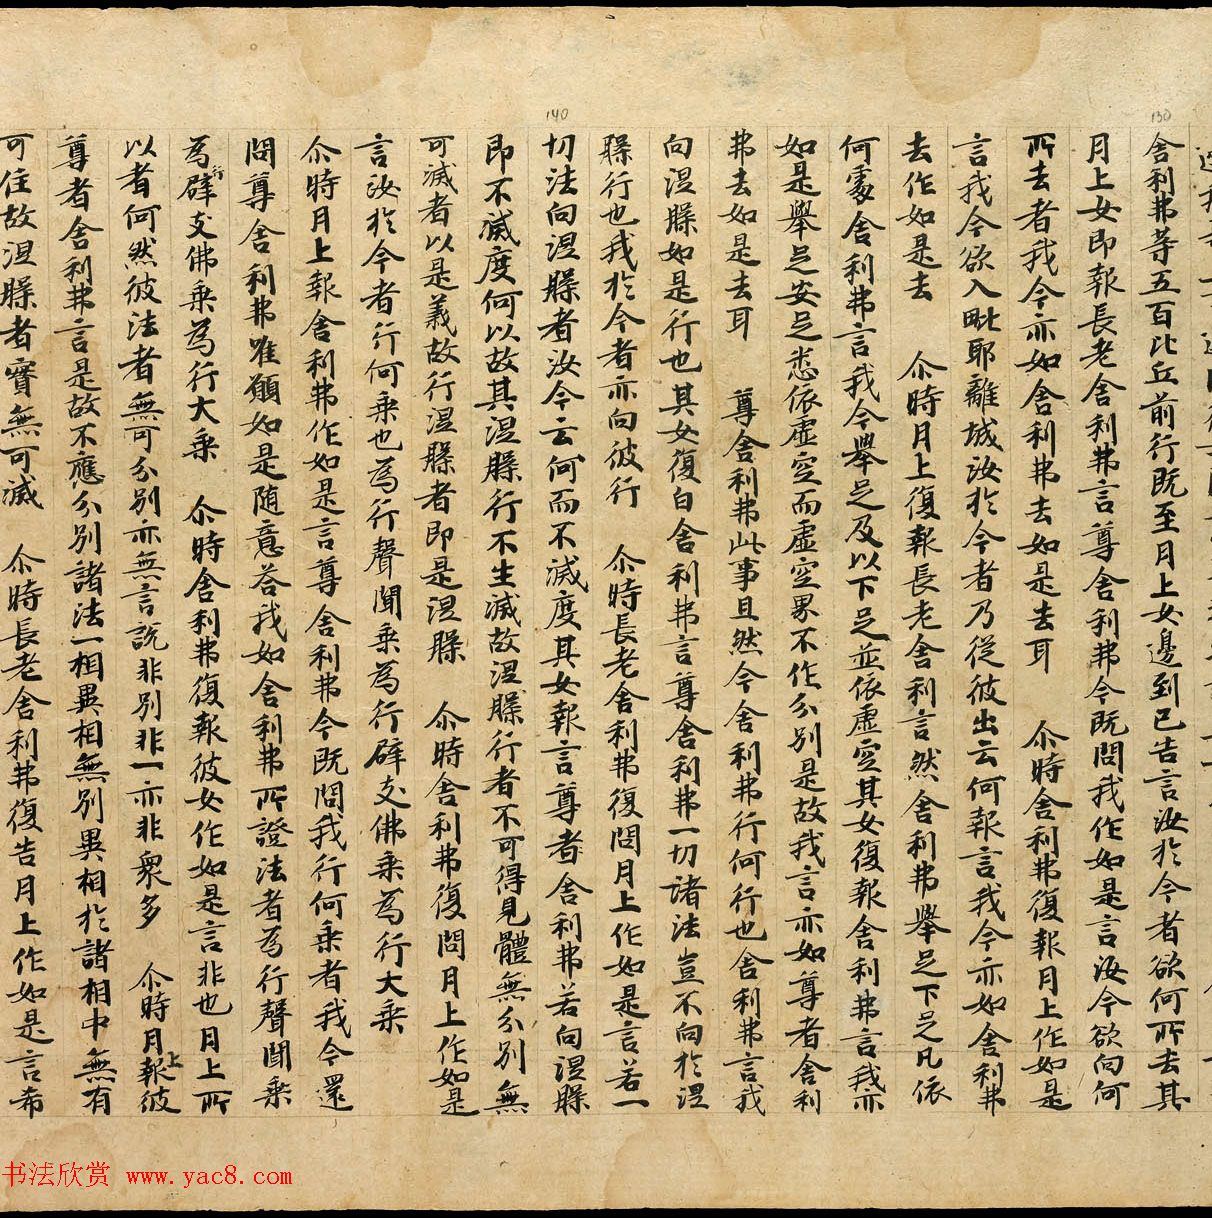 140
130
舍利弗等五百比丘前行既至月上女邊到已告言汝扵今者欲何所去其
月上女即報長老舍利弗言尊舍利弗今既問我作如是言汝今欲向何
所去者我今亦如舍利弗去如是去耳 尒時舍利弗復報月上作如是
言我今欲入毗耶離城汝扵今者乃從彼出云何報言我今亦如舍利弗
去作如是去 尒時月上復報長老舍利言然舍利弗舉足下足凡依
何處舍利弗言我今舉足及以下足並依虛空其女復報舍利弗言我亦
如是舉足安足悉依虛空而虛空界不作分別是故我言亦如尊者舍利
弗去如是去耳 尊舍利弗此事且然今舍利弗行何行也舍利弗言我
向涅槃如是行也其女復白舍利弗言尊舍利弗一切諸法豈不向扵涅
槃行也我扵今者亦向彼行 尒時長老舍利弗復問月上作如是言若一
切法向涅槃者汝今云何而不滅度其女報言尊者舍利弗若向涅槃
即不滅度何以故其涅槃行不生滅故涅槃行者不可得見體無分別無
可滅者以是義故行涅槃者即是涅槃 尒時舍利弗復問月上作如是
言汝扵今者行何乘也為行聲聞乘為行辟支佛乘為行大乘
尒時月上報舍利弗作如是言尊舍利弗今既問我行何乘者我今還
問尊舍利弗唯願如是随意荅我如舍利弗所證法者為行聲聞乘
為行辟支佛乘為行大乘 尒時舍利弗復報彼女作如是言非也月上所
以者何然彼法者無可分別亦無言說非別非一亦非衆多 尒時月上報彼
尊者舍利弗言是故不應分別諸法一相異相無別異相扵諸相中無有
可住故涅槃者實無可滅 尒時長老舍利弗復告月上作如是言希
书法欣赏 www.yac8.com